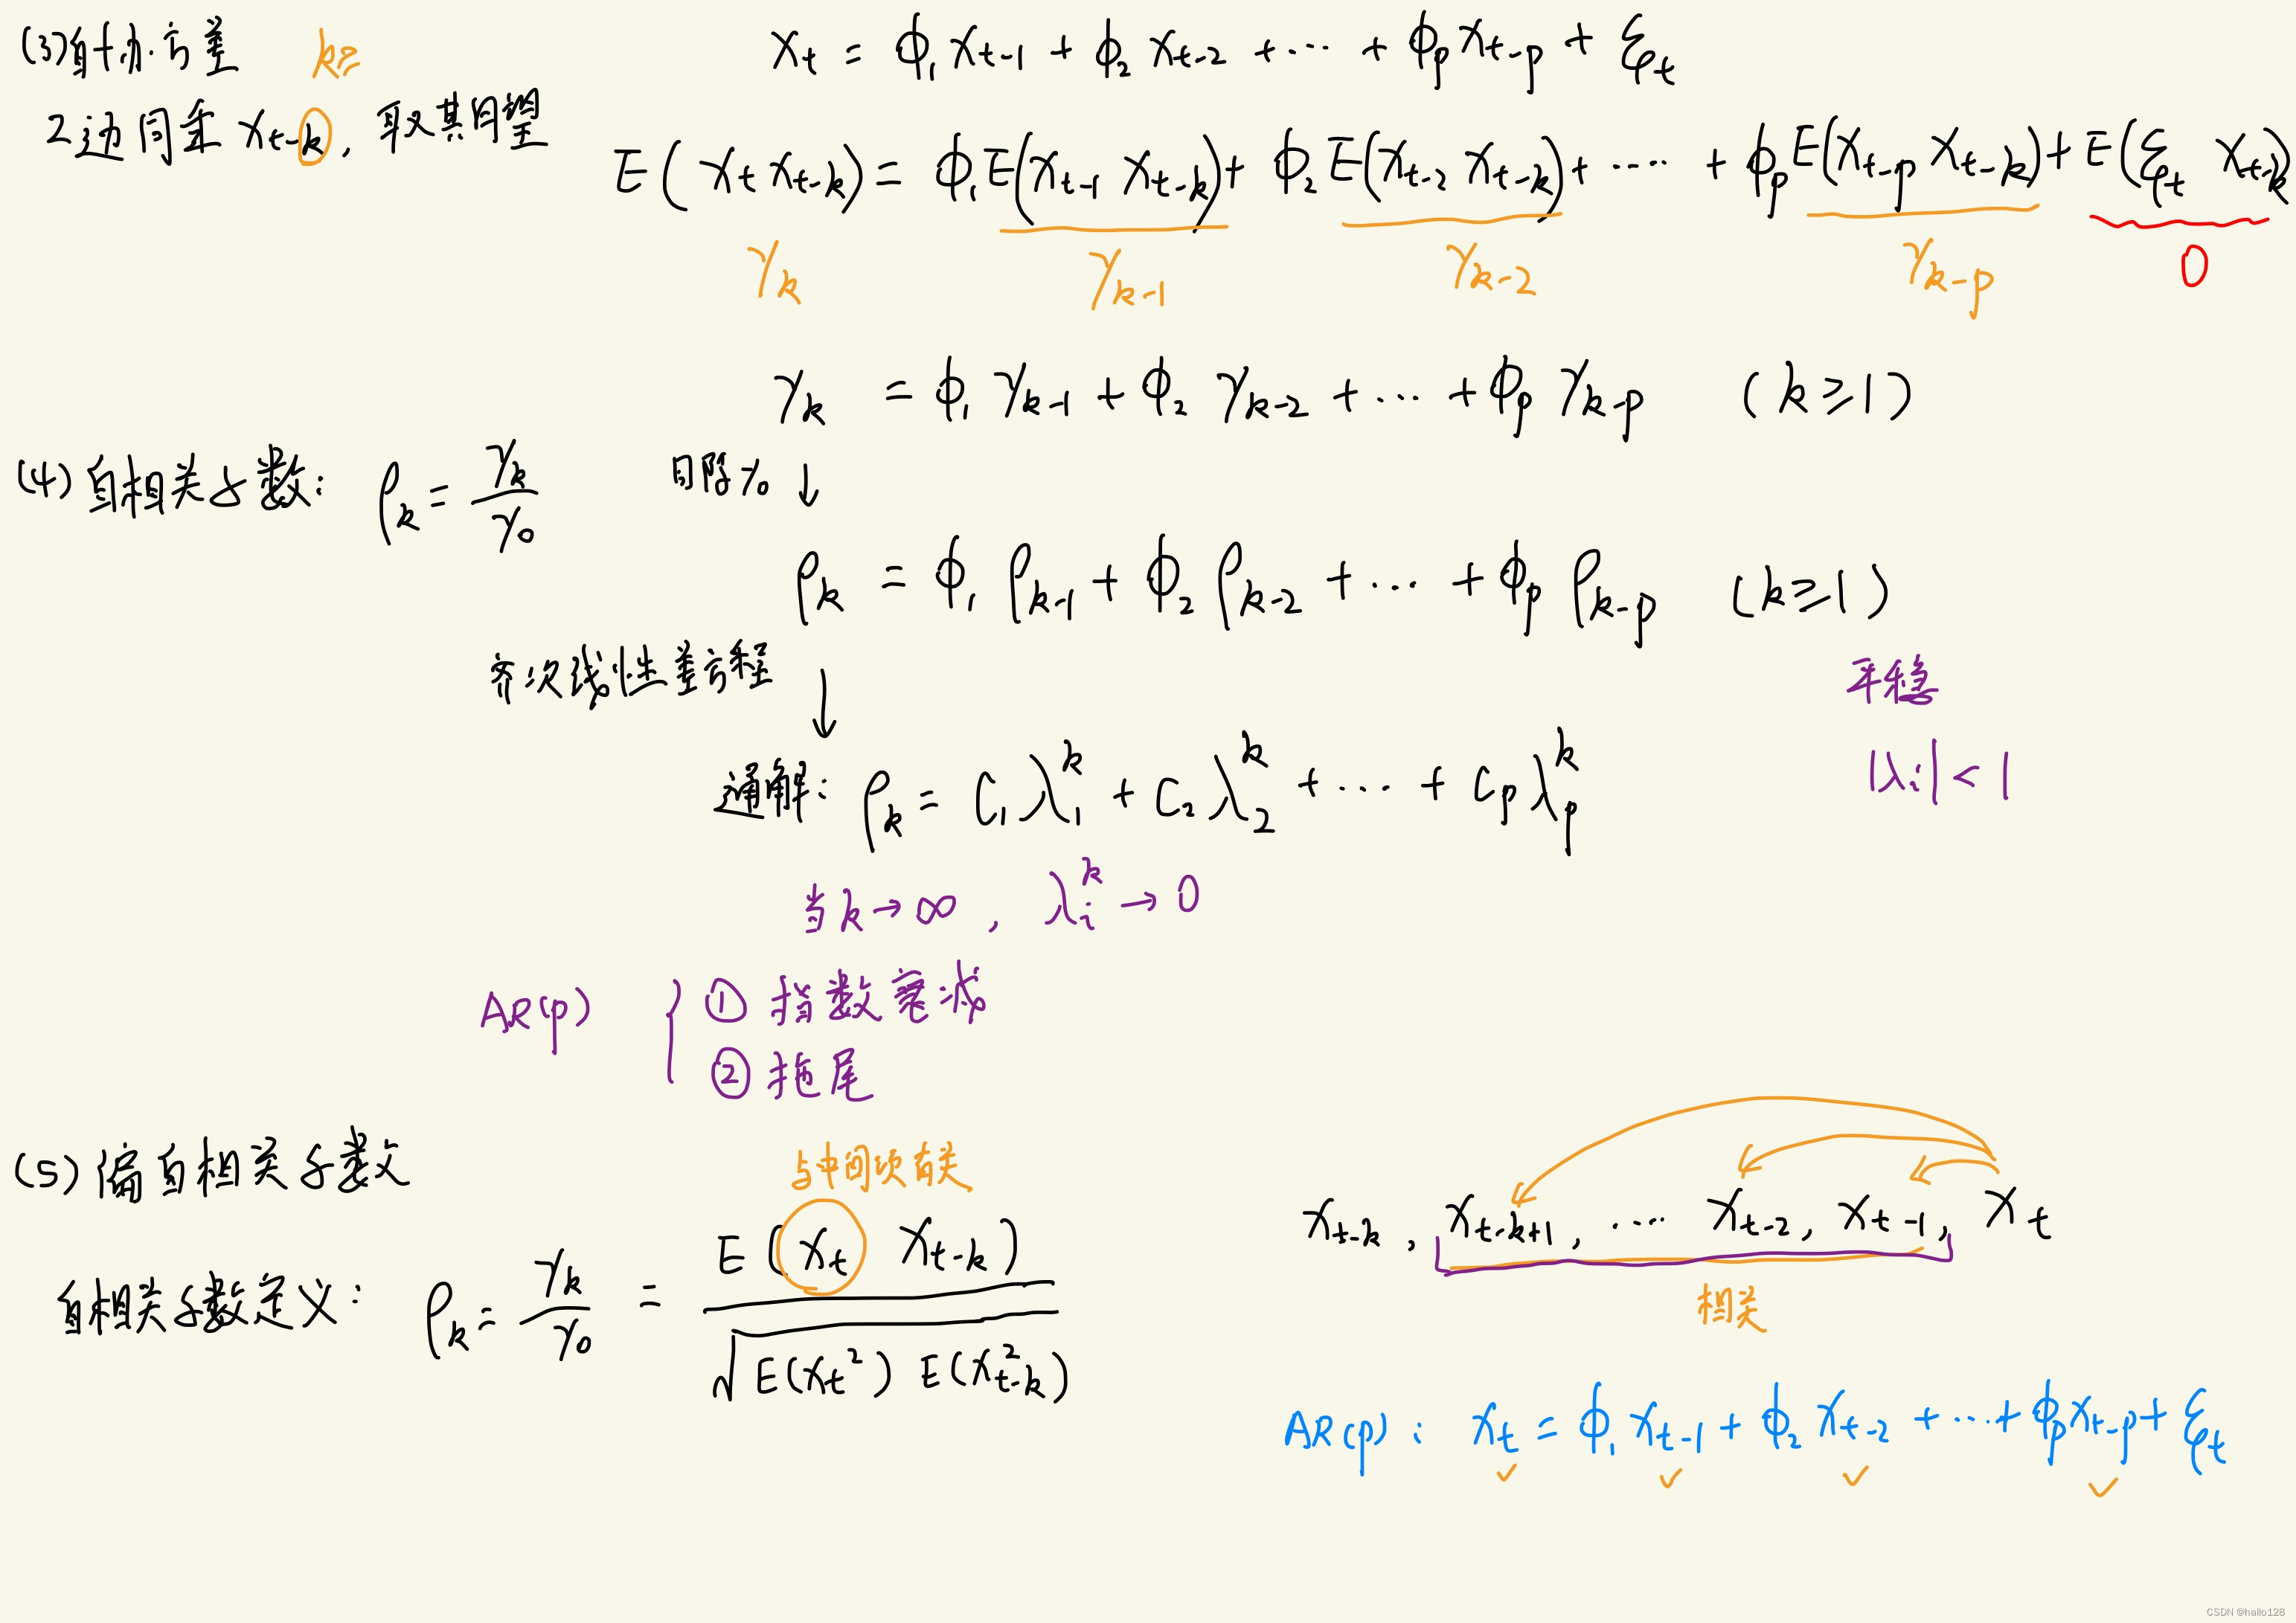 (3) 自协方差
k≥
x_t = φ_1 x_{t-1} + φ_2 x_{t-2} + ⋯ + φ_p x_{t-p} + ξ_t
2边同乘 x_{t-k}, 取其期望
E(x_t x_{t-k}) = φ_1 E(x_{t-1} x_{t-k}) + φ_2 E(x_{t-2} x_{t-k}) + ⋯⋯ + φ_p E(x_{t-p} x_{t-k}) + E(ξ_t x_{t-k})
γ_k γ_{k-1} γ_{k-2} γ_{k-p} 0
γ_k = φ_1 γ_{k-1} + φ_2 γ_{k-2} + ⋯ + φ_p γ_{k-p} (k≥1)
(4) 自相关系数: ρ_k = γ_k / γ_0
同除γ_0 ↓
ρ_k = φ_1 ρ_{k-1} + φ_2 ρ_{k-2} + ⋯ + φ_p ρ_{k-p} (k≥1)
齐次线性差方程 ↓
平稳
|λ_i| < 1
通解: ρ_k = C_1 λ_1^k + C_2 λ_2^k + ⋯ + C_p λ_p^k
当k→∞, λ_i^k → 0
AR(p) { ① 指数衰减
② 拖尾
(5) 偏自相关系数
与中间项有关
自相关系数定义: ρ_k = γ_k / γ_0 = E(x_t x_{t-k}) / √(E(x_t^2) E(x_{t-k}^2))
x_{t-k}, x_{t-k+1}, ⋯ x_{t-2}, x_{t-1}, x_t
相关
AR(p): x_t = φ_1 x_{t-1} + φ_2 x_{t-2} + ⋯ + φ_p x_{t-p} + ξ_t
✓ ✓ ✓ ✓
CSDN @hallo128